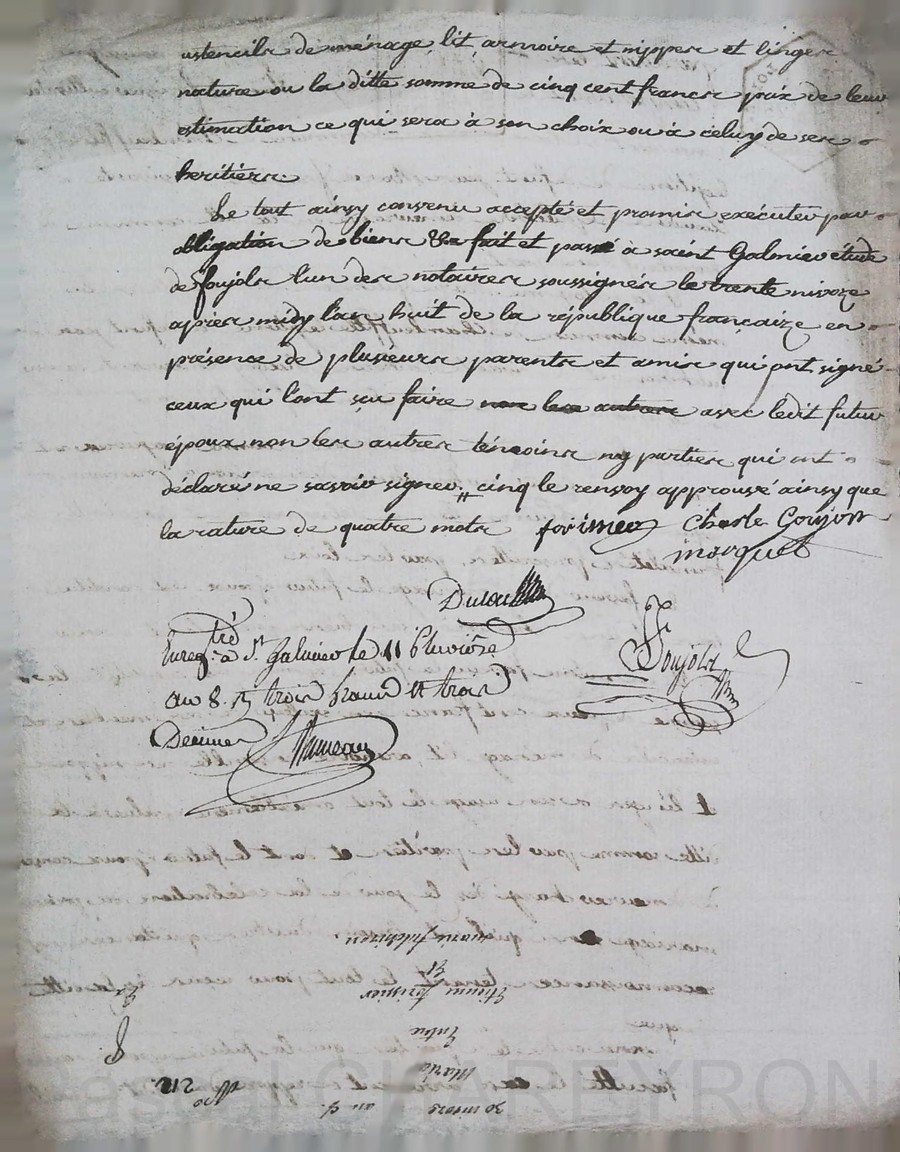 ustencils de ménage, lit, armoire et nippes et linges
nature ou la ditte somme de cinq cent francs prix de leur
estimation ce qui sera à son choix ou à celuy de ses
heritiers.
Le tout ainsy convenu accepté et promis exécuter par
obligation de biens &a fait et passé à saint Galmier étude
de Soujols l'un des notaires soussignés le trente nivoze
après midy l'an huit de la république françaize en
présence de plusieurs parents et amis qui ont signé
ceux qui l'ont sçu faire non les autres avec ledit futur
époux, non les autres témoins ny parties qui ont
déclaré ne savoir signer. cinq le renvoy approuvé ainsy que
la rature de quatre mots forimier Charle Goujon
marquet
Enregtré à St Galmier le 11 Pluviôse
Soujols
an 8. Rs trois francs et trois
Decimes
Marie fulchiron
Et
Etienne forissier
Entre
Maria
30 nivose an 8.
No 212
Pascal CHAREYRON